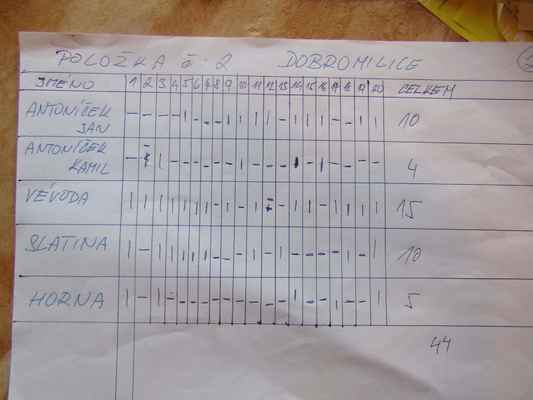 POLOŽKA č. 2 DOBROMILICE
JMÉNO 1 2 3 4 5 6 7 8 9 10 11 12 13 14 15 16 17 18 19 20 CELKEM
ANTONÍČEK
JAN 10
ANTONÍČEK
KAMIL 4
VÉVODA 15
SLATINA 10
HORNA 5
44